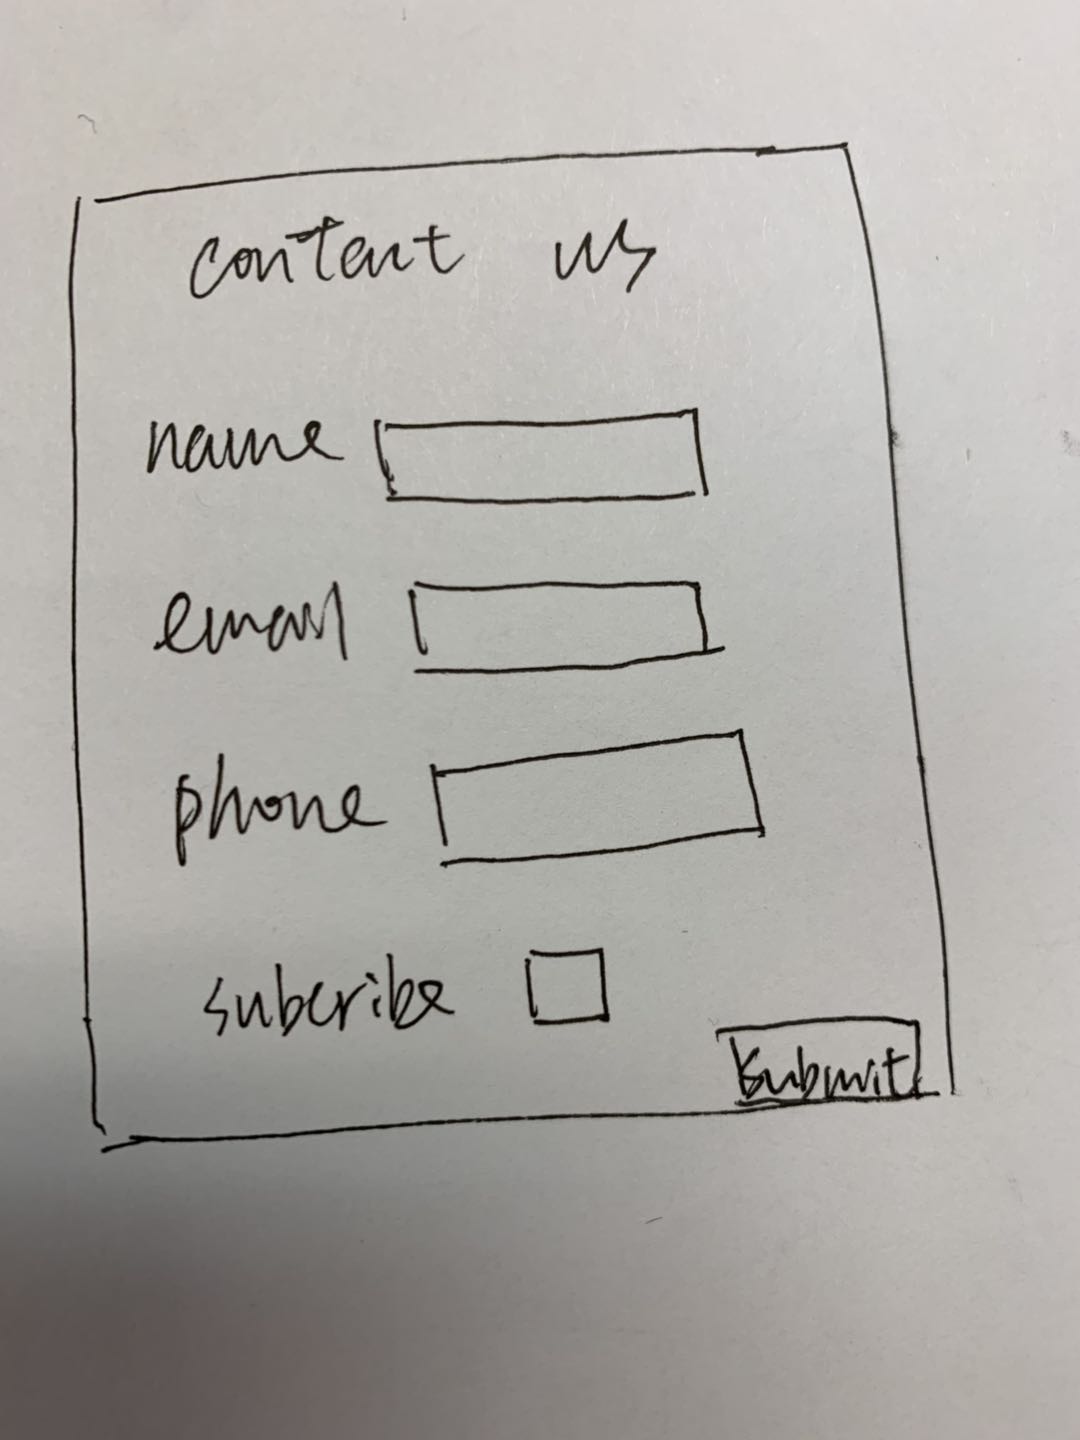 content us
name
email
phone
subcribe
submit